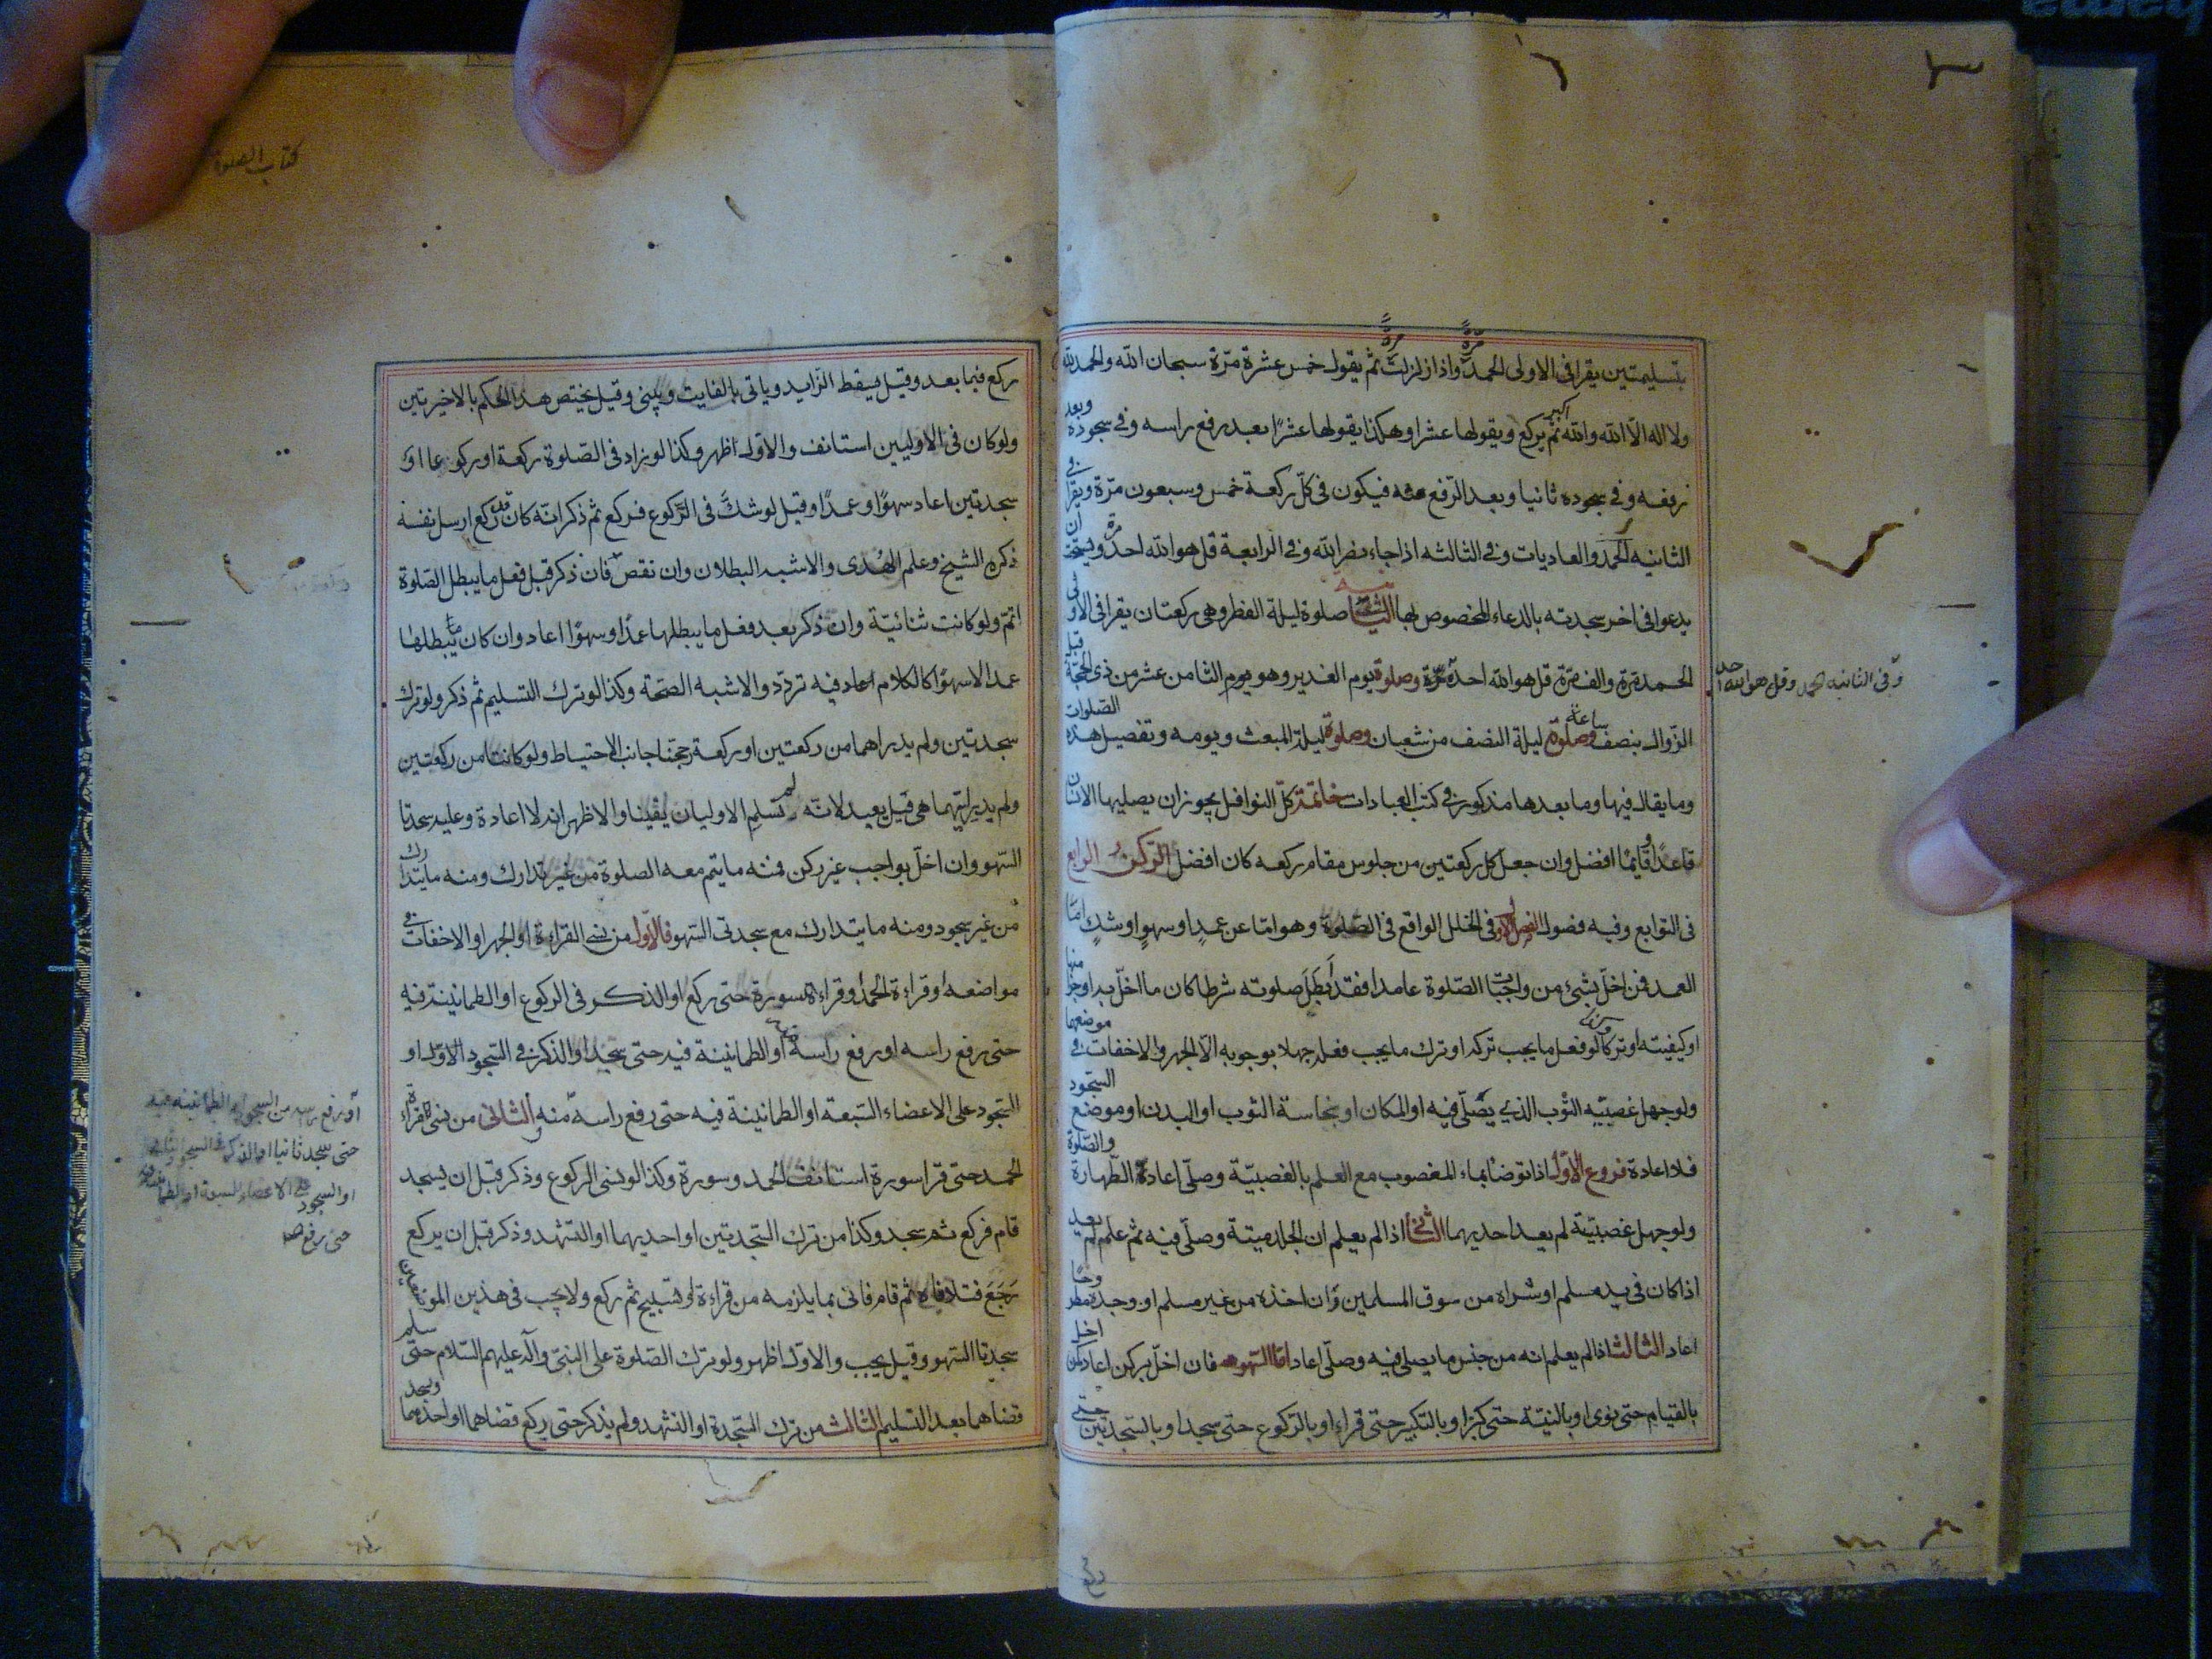 بتسليمتين يقرا فى الاولى الحمد مرّةً واذا زلزلت مرّةً ثم يقول خمس عشرة مرّة سبحان الله والحمد لله
ولا اله الا الله والله اكبر ثم يركع ويقولها عشرا وهكذا يقولها عشرًا بعد رفع راسه وفى سجوده وبعد
رفعه وفى سجوده ثانيا وبعد الرفع منه فيكون فى كلّ ركعة خمس وسبعون مرّة ويقرا فى
الثانيه الحمد والعاديات وفى الثالثه اذا جاء نصر الله وفى الرابعة قل هو الله احد مرة ويستحب ان
يدعوا فى اخر سجدته بالدعاء المخصوص لها صلوة ليلة الفطر وهى ركعتان يقرا فى الاولى
الحمد مرّة والف مرّة قل هو الله احد مرّة وصلوة يوم الغدير وهو يوم الثامن عشر من ذى الحجّة قبل
وفى الثانيه الحمد وقل هو الله احد
الزّوال بنصف ساعة وصلوة ليلة النصف من شعبان وصلوة ليلة المبعث ويومه وتفصيل هذه الصّلوات
وما يقال فيها وما بعدها مذكور فى كتب العبادات خاتمة كلّ النوافل يجوز ان يصليها الانسان
قاعدًا وقايمًا افضل وان جعل كل ركعتين من جلوس مقام ركعه كان افضل الركن الرابع
فى التوابع وفيه فصول الفصل الاول فى الخلل الواقع فى الصّلوة وهو امّا عن عمدٍ او سهوٍ او شكٍ امّا
العمد فمن اخلّ بشئ من واجبات الصّلوة عامدا فقد ابطل صلوته شرطا كان ما اخلّ به او جزءا منها
او كيفيته او تركا ولو فعل ما يجب تركه او ترك ما يجب فعله جهلا بوجوبه الا الجهر والاخفات فى موضعهما
ولو جهل غصبيّه الثوب الذى يصّلّى فيه او المكان او نجاسة الثوب او البدن او موضع السّجود
فلا اعادة فروع الاوّل اذا توضأ بماء المغصوب مع العلم بالغصبيّة وصلّى اعادة الطّهارة والصّلوة
ولو جهل غصبيّته لم يعد احديهما الثانى اذا لم يعلم ان الجلد ميتة وصلّى فيه ثم علم لم يعد
اذا كان فى يد مسلم او شراه من سوق المسلمين وان اخذه من غير مسلم او وجده مطروحا
اعاد الثالث اذا لم يعلم انه من جنس ما يصلى فيه وصلّى اعاد امّا السّهو فان اخلّ بركن اعاد كمن اخل
بالقيام حتى نوى او بالنيّة حتى كبّر او بالتكبير حتى قراء او بالركوع حتى سجد او بالسّجدتين حتى
ركع
كتاب الصلوة
ركع فيما بعد وقيل يسقط الزايد وياتى بالفايت ويبنى وقيل يختص هذا الحكم بالاخيرتين
ولو كان فى الاوليين استانف والاوّل اظهر وكذا لو زاد فى الصّلوة ركعة او ركوعا او
سجدتين اعاد سهوًا او عمدًا وقيل لو شكّ فى الركوع فركع ثم ذكر انّه كان قد ركع ارسل نفسه
ذكره الشيخ وعلم الهُدى والاشبه البطلان وان نقص فان ذكر قبل فعل ما يبطل الصّلوة
اتمّ ولو كانت ثنائيّة وان ذكر بعد فعل ما يبطلها عمدًا او سهوًا اعاد وان كان مما يبطلها
عمدا لا سهوًا كالكلام اعاد فيه تردّد والاشبه الصّحة وكذا لو ترك التسليم ثم ذكر ولو ترك
سجدتين ولم يدر اهما من ركعتين او ركعة رجحنا جانب الاحتياط ولو كانتا من ركعتين
ولم يدر ايّتهما هى قيل يعيد لانّه لم تسلم الاوليان يقينا والاظهر انه لا اعادة وعليه سجدتا
السّهو وان اخلّ بواجب غير ركن فمنه ما يتم معه الصلوة من غير تدارك ومنه ما يتدارك
من غير سجود ومنه ما يتدارك مع سجدتى السّهو فالاوّل من نسى القراءة او الجهر او الاخفات فى
مواضعه او قراءة الحمد او قراءة السورة حتى ركع او الذكر فى الركوع او الطمانينة فيه
حتى رفع راسه او رفع راسه او الطمانينة فيه حتى سجد او الذكر فى السّجود الاوّل او
السّجود على الاعضاء السّبعة او الطمانينة فيه حتى رفع راسه منه والثانى من نسى قراءة
او رفع راسه من السجود او الطمانينه فيه
حتى سجد ثانيا او الذكر فى السجود الثانى
او السجود على الاعضاء السبعة او الطمانينة فيه
حتى رفع صح
الحمد حتى قرا سورة استانف الحمد وسورة وكذا لو نسى الركوع وذكر قبل ان يسجد
قام فركع ثم سجد وكذا من ترك السّجدتين او احديهما او التشهد وذكر قبل ان يركع
رَجَعَ فتلافاه ثم قام فاتى بما يلزمه من قراءة او تسبيح ثم ركع ولا يجب فى هذين الموضعين
سجدتا السّهو وقيل يجب والاوّل اظهر ولو ترك الصّلوة على النبىّ وآله عليهم السّلام حتى سلم
قضاهما بعد التسليم الثالث من ترك السّجدة او التشهد ولم يذكر حتى ركع قضاهما او احدهما وسجد